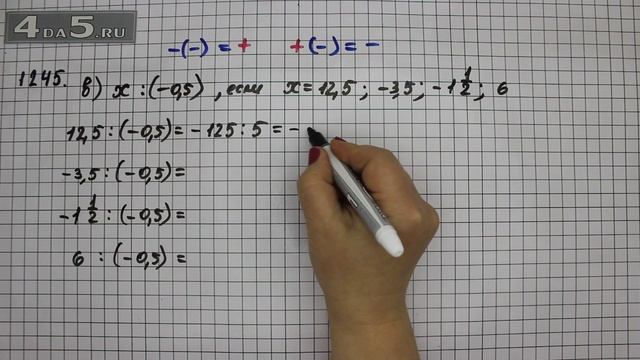 4DA5.RU
-(-) = + +(-) = -
1245. в) x : (-0,5), если x = 12,5 ; -3,5 ; -1 1/2 ; 6
12,5 : (-0,5) = - 125 : 5 = -
-3,5 : (-0,5) =
-1 1/2 : (-0,5) =
6 : (-0,5) =